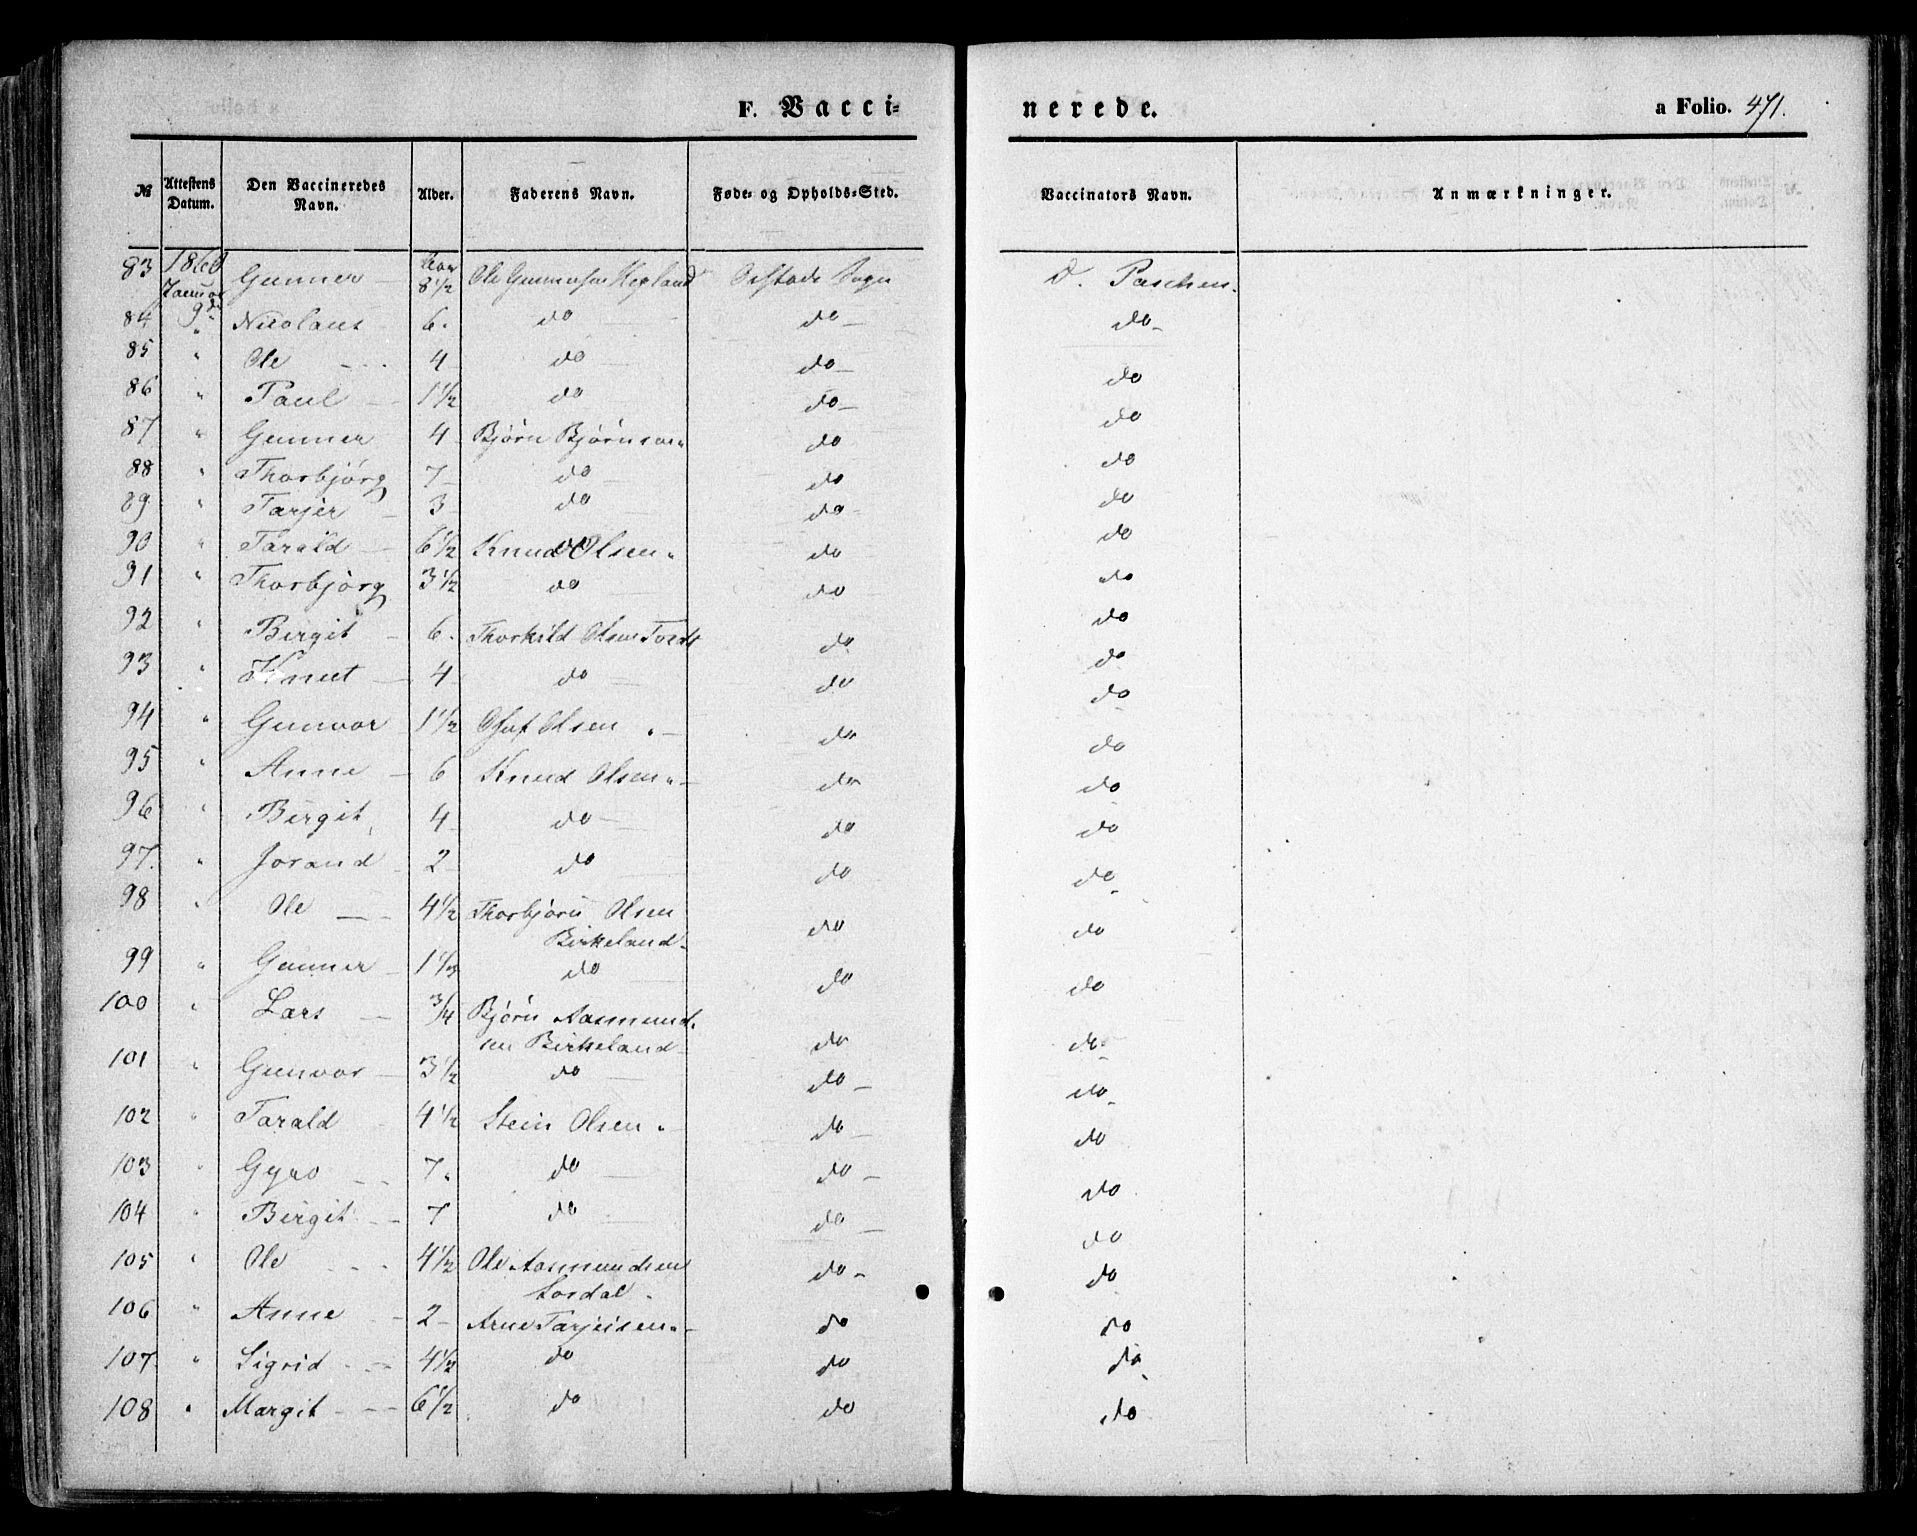 F. Vacci= nerede. a Folio. 471.
№ Attestens Datum. Den Vaccineredes Navn. Alder. Faderens Navn. Føde- og Opholds-Sted. Vaccinators Navn. Anmærkninger.
83 1860 Januar 9de Gunner 8 1/2 Ole Gunnersen Sogn D. Paschen.
84 " Nicolaus 6. do do do
85 " Ole 4 do do do
86 " Paul 1 1/2 do do do
87 " Gunner 4 Bjørn Bjørnsen " do do
88 " Thorbjörg 7 do do do
89 " Tarjer 3 do do do
90 " Tarald 6 1/2 Knud Olsen " do do
91 " Thorbjörg 3 1/2 do do do
92 " Birgit 6. Thorkild Olsen do do
93 " Knut 4 do do do
94 " Gunvor 1 1/2 Oluf Olsen " do do
95 " Anne 6 Knud Olsen " do do
96 " Birgit 4 do do do
97. " Jorand 2 do do do
98 " Ole 4 1/2 Thorbjørn Olsen
Birkeland do do
99 " Gunner 1 1/2 do do do
100 " Lars 3/4 Bjørn Aasmund.
sen Birkeland do do
101 " Gunvor 3 1/2 do do do
102 " Tarald 4 1/2 Stein Olsen " do do
103 " Gyro 7. do do do
104 " Birgit 7 do do do
105 " Ole 4 1/2 Ole Aasmundsen
Lordal. do do
106 " Anne 2 Arne Tarjeisen " do do
107. " Sigrid 4 1/2 do do do
108 " Margit 6 1/2 do do do